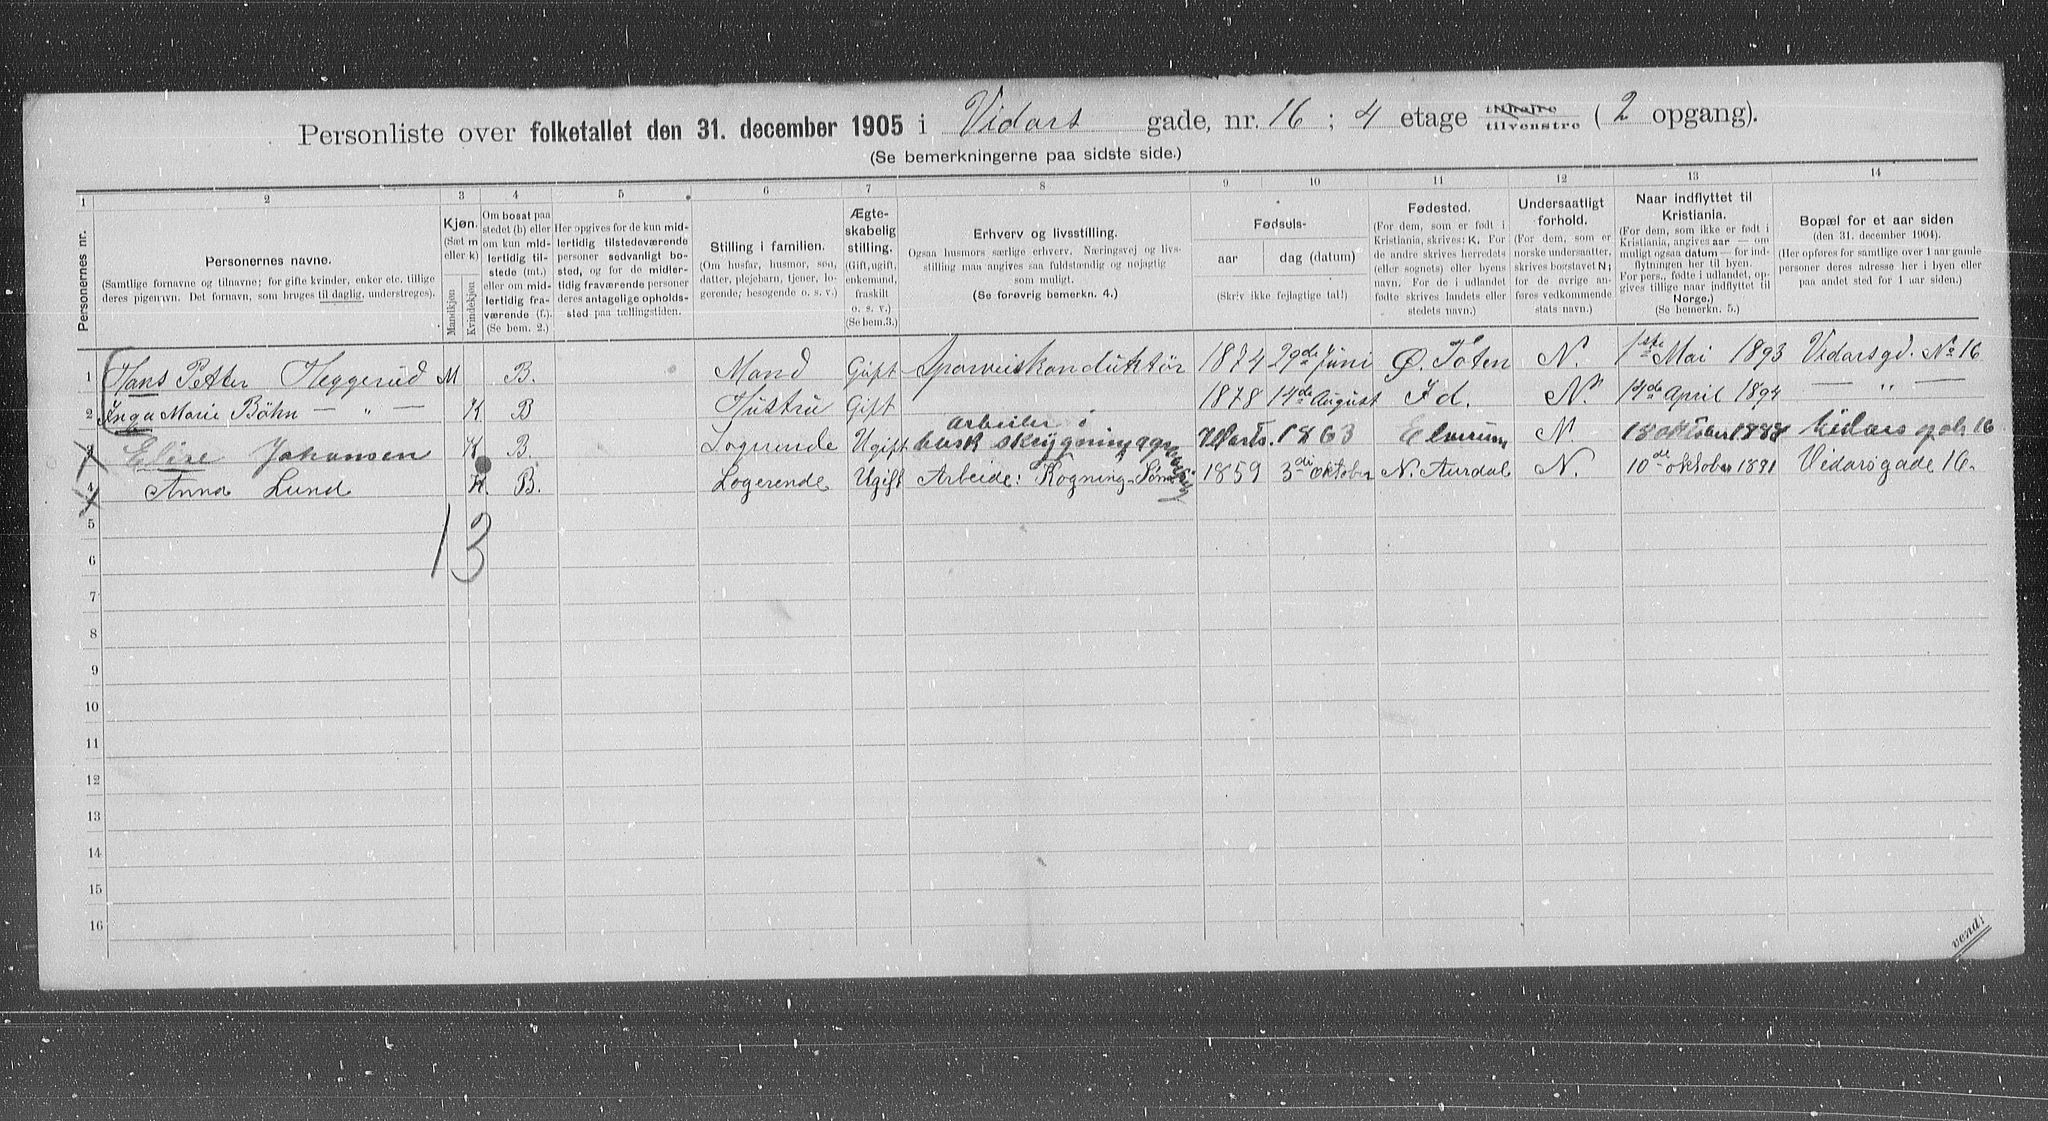 Personliste over folketallet den 31. december 1905 i Vidars gade, nr. 16 ; 4 etage tilhøire tilvenstre ( 2 opgang).
(Se bemerkningerne paa sidste side.)
1 2 3 4 5 6 7 8 9 10 11 12 13 14
Personernes nr.
Personernes navne.
(Samtlige fornavne og tilnavne; for gifte kvinder, enker etc. tillige
deres pigenavn. Det fornavn, som bruges til daglig, understreges).
Kjøn.
(Sæt m
eller k)
Mandkjøn
Kvindekjøn
Om bosat paa
stedet (b) eller
om kun mid-
lertidig til-
stede (mt.)
eller om mid-
lertidig fra-
værende (f.).
(Se bem. 2.)
Her opgives for de kun mid-
lertidig tilstedeværende
personer sedvanligt bo-
sted, og for de midler-
tidig fraværende personer
deres antagelige opholds-
sted paa tællingstiden.
Stilling i familien.
(Om husfar, husmor, søn,
datter, plejebarn, tjener, lo-
gerende, besøgende o. s. v.)
Ægte-
skabelig
stilling.
(Gift, ugift,
enkemand,
fraskilt
o. s. v.)
(Se bem.3.)
Erhverv og livsstilling.
Ogsaa husmors særlige erhverv. Næringsvej og livs-
stilling maa angives saa fuldstændig og nøjagtig
som muligt.
(Se forøvrig bemerkn. 4.)
Fødsels-
aar dag (datum)
(Skriv ikke fejlagtige tal!)
Fødested.
(For dem, som er født i
Kristiania, skrives: K. For
de andre skrives herredets
(eller sognets) eller byens
navn. For de i udlandet
fødte skrives landets eller
stedets navn.)
Undersaatligt
forhold.
(For dem, som er
norske undersaatter,
skrives bogstavet N;
for de øvrige an-
føres vedkommende
stats navn.)
Naar indflyttet til
Kristiania.
(For dem, som ikke er født i
Kristiania, angives aar — om
muligt ogsaa datum — for ind-
flytningen her til byen.
For pers., fødte i udlandet, op-
gives tillige naar indflyttet til
Norge.)
(Se bemerkn. 5.)
Bopæl for et aar siden
(den 31. december 1904).
(Her opføres for samtlige over 1 aar gamle
personer deres adresse her i byen eller
paa andet sted for 1 aar siden.)
1 Hans Petter Heggerud M B. Mand Gift Sporveiskonduktør 1874 29de Juni Ø. Toten N. 1ste Mai 1893 Vidarsgd. No 16
2 Inga Marie Bøhn — „ — K B Hustru Gift 1878 14de August Id. N. 14de April 1894 — „ —
arbeiler i
3 Elise Johansen K B. Logerende Ugift 1863 Elverum N. 18 oktober 1888 16
4 Anna Lund K. B. Logerende Ugift Arbeide: Kogning Søm 1859 3di oktober N. Aurdal N. 10de oktober 1891 Vidarsgade 16.
5
1 3
6
7
8
9
10
11
12
13
14
15
16
vend!